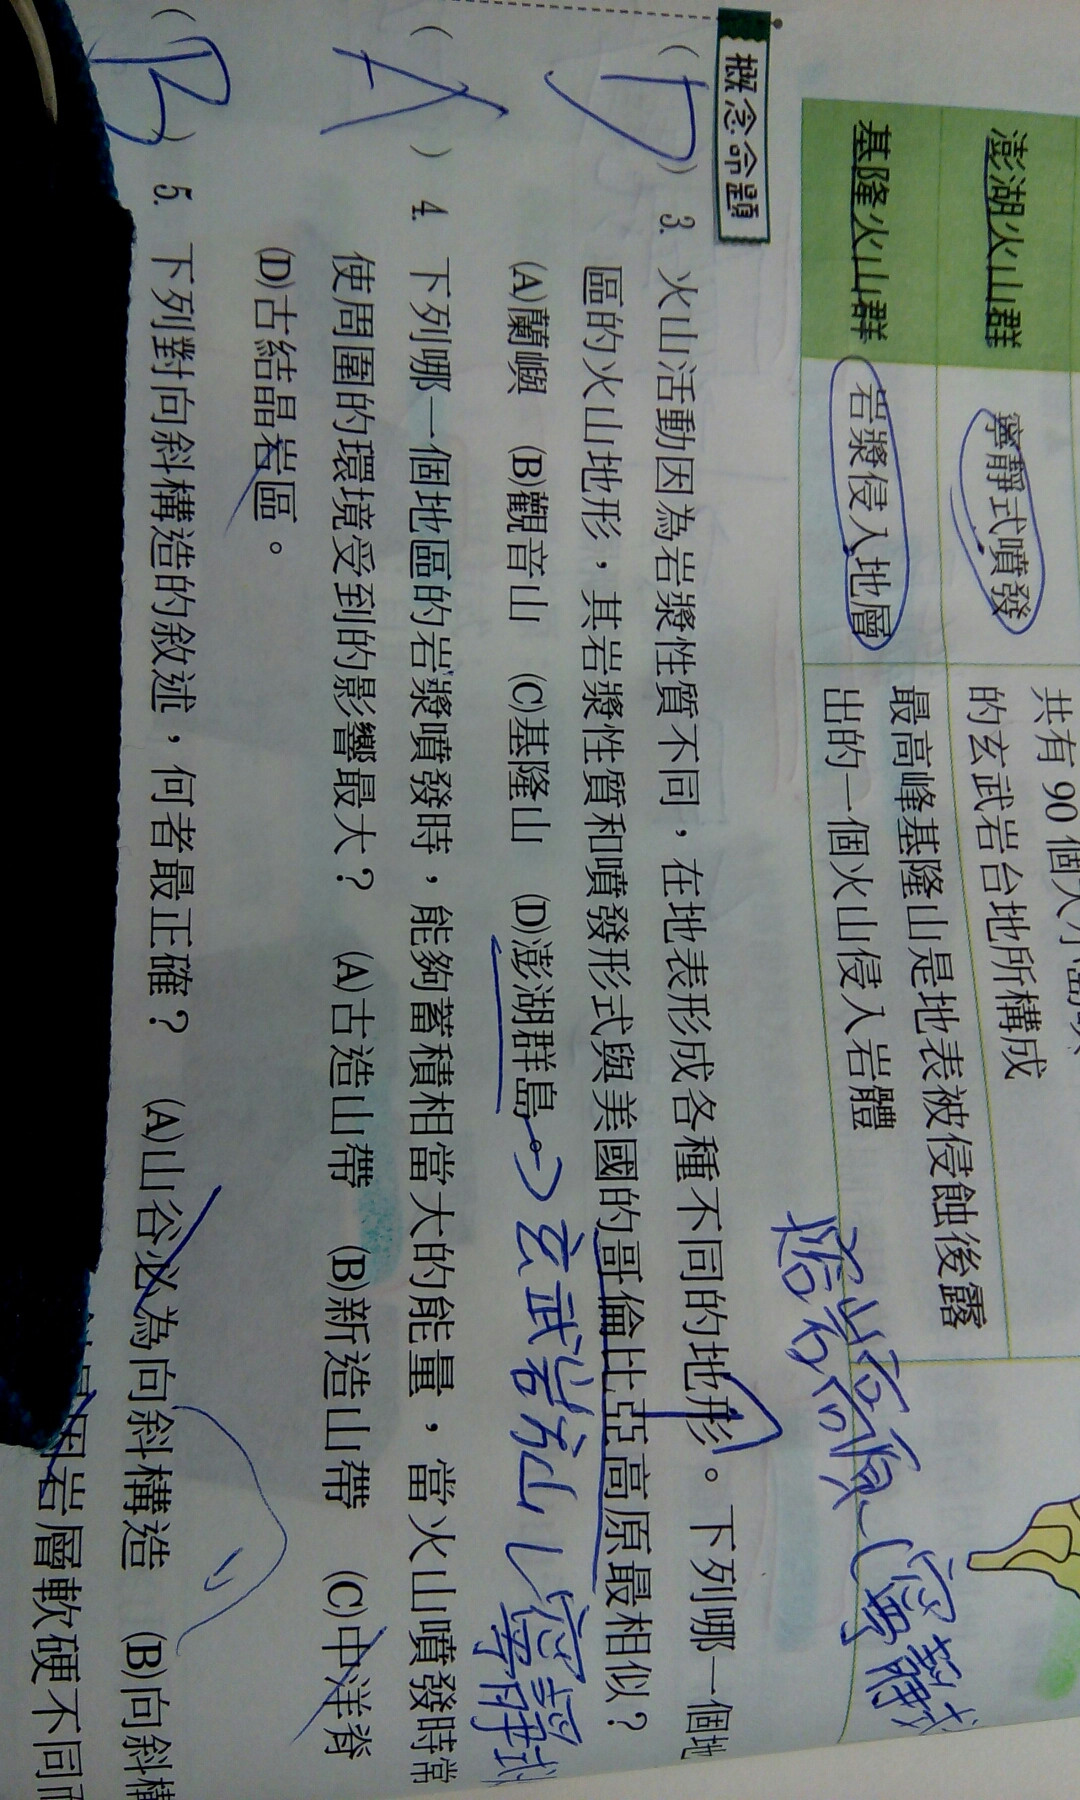 澎湖火山群
寧靜式噴發
共有90個大小島嶼
的玄武岩台地所構成
基隆火山群
岩漿侵入地層
最高峰基隆山是地表被侵蝕後露
出的一個火山侵入岩體
概念命題
(D) 3. 火山活動因為岩漿性質不同，在地表形成各種不同的地形。下列哪一個地
區的火山地形，其岩漿性質和噴發形式與美國的哥倫比亞高原最相似？
(A)蘭嶼 (B)觀音山 (C)基隆山 (D)澎湖群島。→玄武岩火山(寧靜式
(A) 4. 下列哪一個地區的岩漿噴發時，能夠蓄積相當大的能量，當火山噴發時常
使周圍的環境受到的影響最大？ (A)古造山帶 (B)新造山帶 (C)中洋脊
(D)古結晶岩區。
(B) 5. 下列對向斜構造的敘述，何者最正確？ (A)山谷必為向斜構造 (B)向斜構
因岩層軟硬不同而